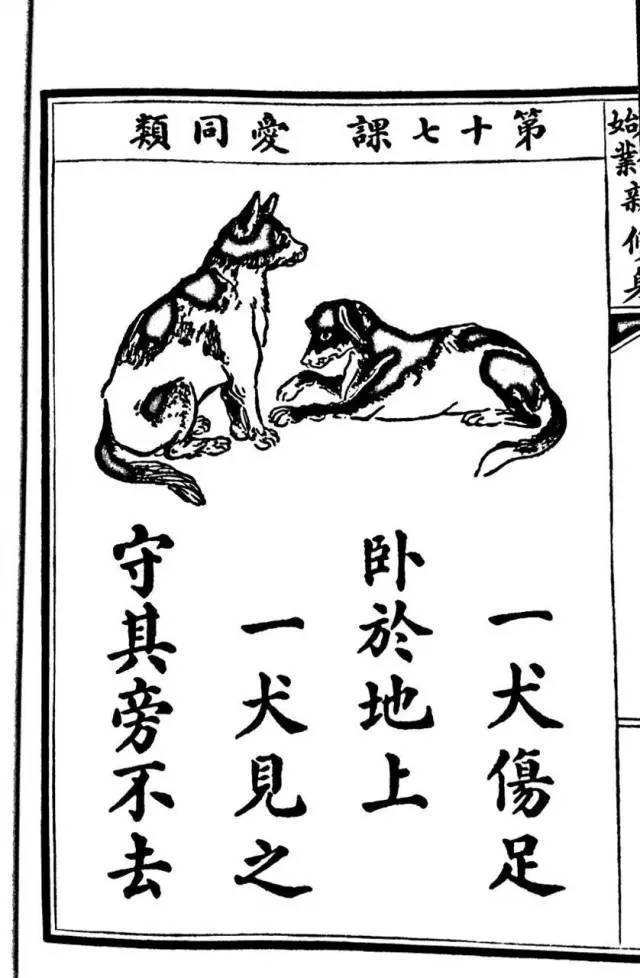 始業新修身
第十七課 愛同類
一犬傷足
臥於地上
一犬見之
守其旁不去